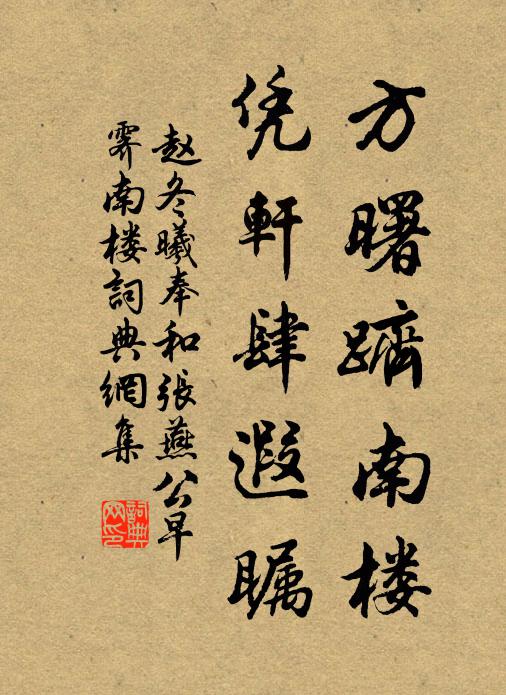 方曙蹄南楼
凭軒肆遐瞩
赵冬曦奉和張燕公早
霁南楼詞典網集
詞典网印